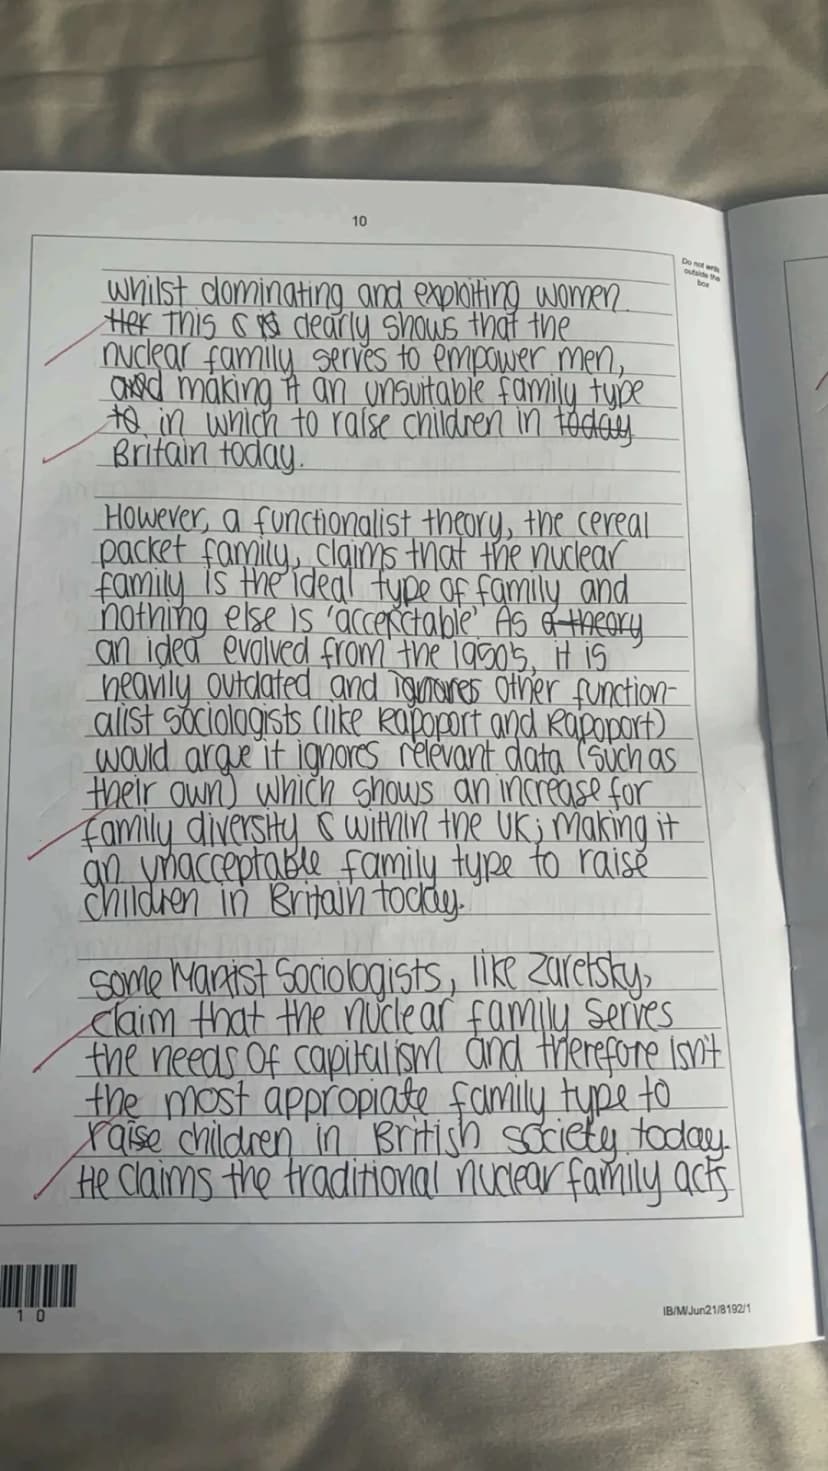 10
Do not write
outside the
box
whilst dominating and exploiting women.
Her This is clearly shows that the
nuclear family serves to empower men,
and making it an unsuitable family type
to in which to raise children in today
Britain today.
However, a functionalist theory, the cereal
packet family, claims that the nuclear
family is the ideal type of family and
nothing else is 'acceptable' As a theory
an idea evolved from the 1950's, it is
heavily outdated and ignores other function-
alist sociologists (like Rapoport and Rapoport)
would argue it ignores relevant data (such as
their own) which shows an increase for
family diversity within the UK; making it
an unacceptable family type to raise
children in Britain today.
Some Marxist Sociologists, like Zaretsky,
claim that the nuclear family serves
the needs of capitalism and therefore isn't
the most appropiate family type to
raise children in British society today.
He claims the traditional nuclear family acts
1 0
IB/M/Jun21/8192/1